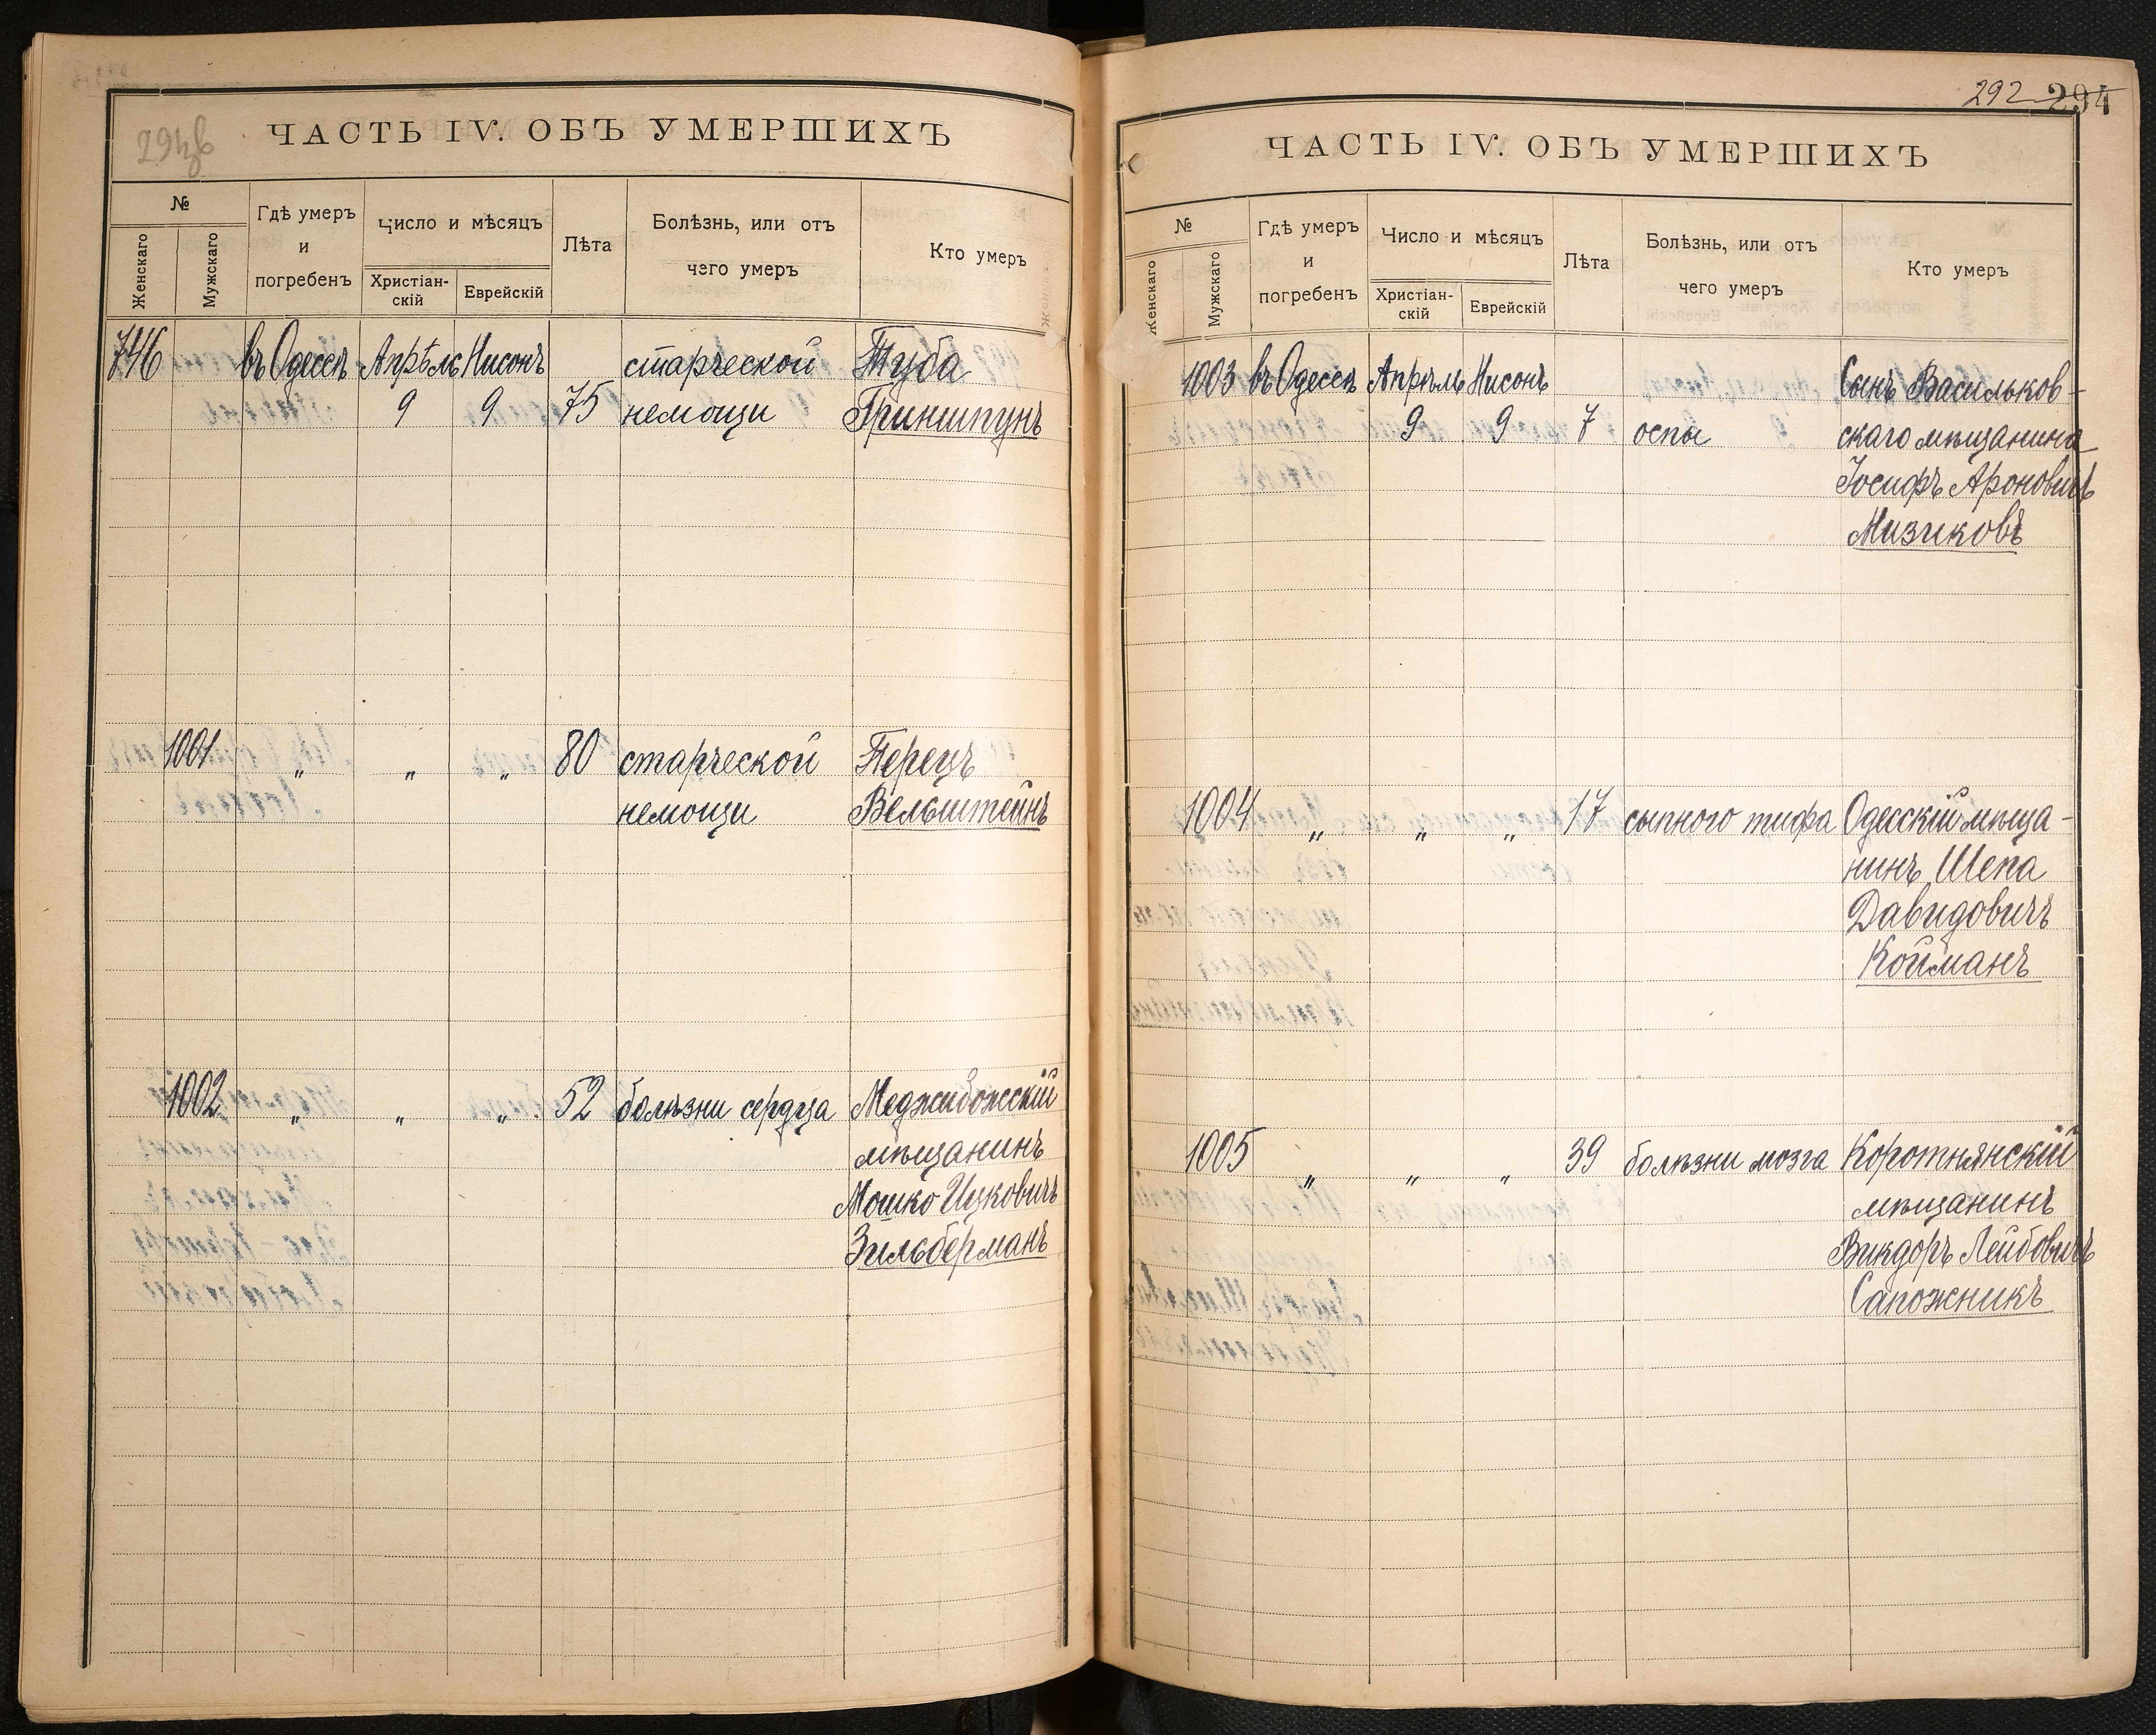 294об
ЧАСТЬ IV. ОБЪ УМЕРШИХЪ
№
Женскаго
Мужскаго
Гдѣ умеръ
и
погребенъ
Число и мѣсяцъ
Христіан-
скій
Еврейскій
Лѣта
Болѣзнь, или отъ
чего умеръ
Кто умеръ
746 въ Одессѣ Апрѣль Нисонъ старческой Туба
9 9 75 немощи Гриншпунъ
1001 „ „ „ 80 старческой Перецъ
немощи Вельштейнъ
1002 „ „ „ 52 болѣзни сердца Меджибожскій
мѣщанинъ
Мошко Ицковичъ
Зильберманъ
292 294
ЧАСТЬ IV. ОБЪ УМЕРШИХЪ
№
Женскаго
Мужскаго
Гдѣ умеръ
и
погребенъ
Число и мѣсяцъ
Христіан-
скій
Еврейскій
Лѣта
Болѣзнь, или отъ
чего умеръ
Кто умеръ
1003 въ Одессѣ Апрѣль Нисонъ Сынъ Васильков-
9 9 7 оспы скаго мѣщанина
Іосифъ Ароновичъ
Мизиковъ
1004 „ „ „ 17 сыпного тифа Одесскій мѣща-
нинъ Шепа
Давидовичъ
Койманъ
1005 „ „ „ 39 болѣзни мозга Коротнянскій
мѣщанинъ
Викдоръ Лейбовичъ
Сапожникъ